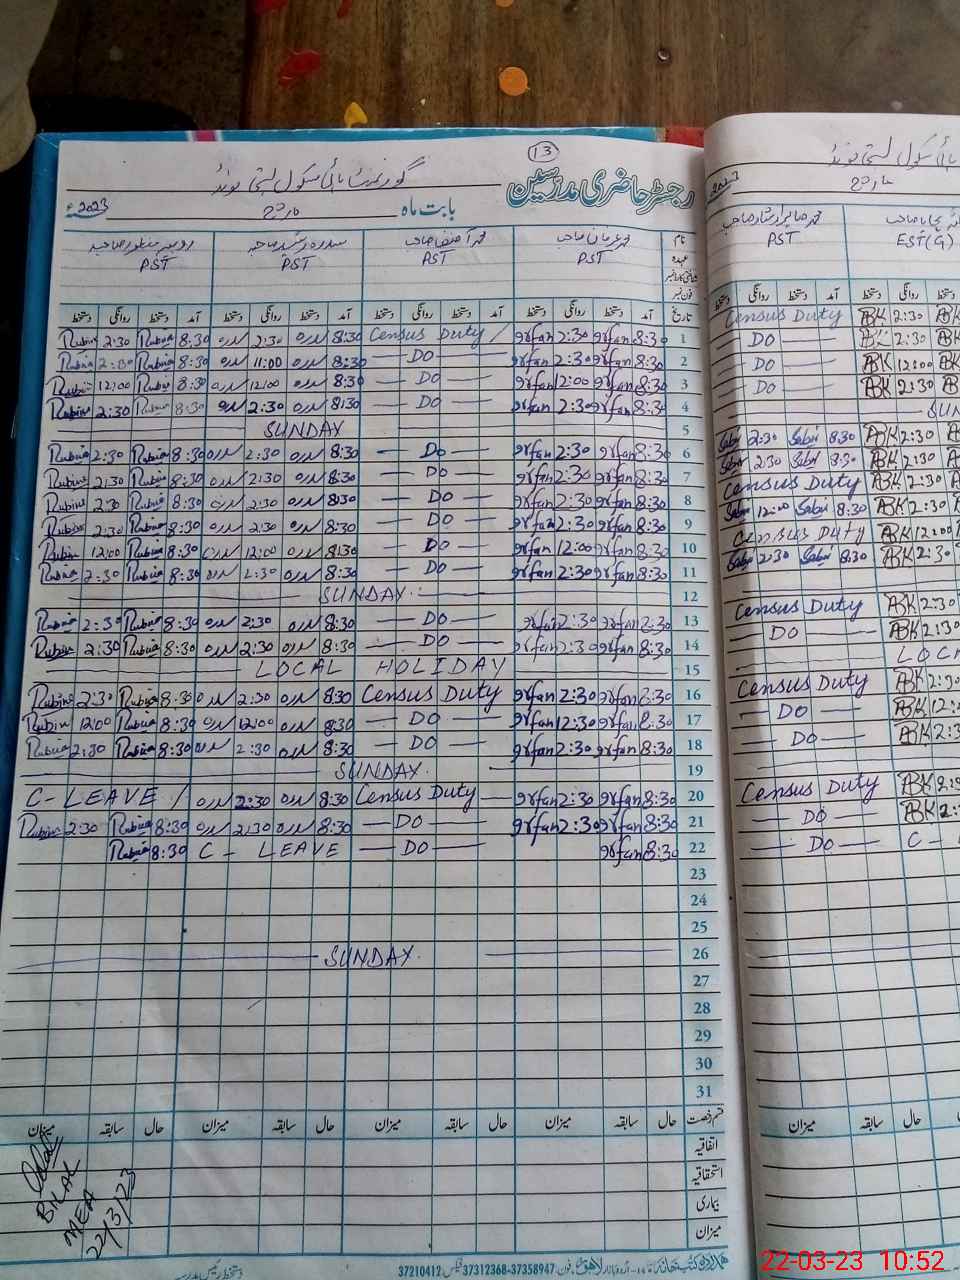 13
رجسٹر حاضری مدرسین
گورنمنٹ ہائی سکول بستی
بابت ماہ مارچ 2023ء
نام
عہدہ
فون نمبر
محمد عرفان صاحب PST
محمد آصف صاحب PST
سدرہ رشید صاحبہ PST
روبینہ منظور صاحبہ PST
تاریخ آمد دستخط روانگی دستخط آمد دستخط روانگی دستخط آمد دستخط روانگی دستخط آمد دستخط روانگی دستخط
Rubina 2:30 Rubina 8:30 سدرہ 2:30 سدرہ 8:30 Census Duty Irfan 2:30 Irfan 8:30 1
Rubina 2:30 Rubina 8:30 سدرہ 11:00 سدرہ 8:30 — DO — Irfan 2:30 Irfan 8:30 2
Rubina 12:00 Rubina 8:30 سدرہ 12:00 سدرہ 8:30 — DO — Irfan 12:00 Irfan 8:30 3
Rubina 2:30 Rubina 8:30 سدرہ 2:30 سدرہ 8:30 — DO — Irfan 2:30 Irfan 8:30 4
SUNDAY 5
Rubina 2:30 Rubina 8:30 سدرہ 2:30 سدرہ 8:30 — DO — Irfan 2:30 Irfan 8:30 6
Rubina 2:30 Rubina 8:30 سدرہ 2:30 سدرہ 8:30 — DO — Irfan 2:30 Irfan 8:30 7
Rubina 2:30 Rubina 8:30 سدرہ 2:30 سدرہ 8:30 — DO — Irfan 2:30 Irfan 8:30 8
Rubina 2:30 Rubina 8:30 سدرہ 2:30 سدرہ 8:30 — DO — Irfan 2:30 Irfan 8:30 9
Rubina 12:00 Rubina 8:30 سدرہ 12:00 سدرہ 8:30 — DO — Irfan 12:00 Irfan 8:30 10
Rubina 2:30 Rubina 8:30 سدرہ 2:30 سدرہ 8:30 — DO — Irfan 2:30 Irfan 8:30 11
SUNDAY 12
Rubina 2:30 Rubina 8:30 سدرہ 2:30 سدرہ 8:30 — DO — Irfan 2:30 Irfan 8:30 13
Rubina 2:30 Rubina 8:30 سدرہ 2:30 سدرہ 8:30 — DO — Irfan 2:30 Irfan 8:30 14
LOCAL HOLIDAY 15
Rubina 2:30 Rubina 8:30 سدرہ 2:30 سدرہ 8:30 Census Duty Irfan 2:30 Irfan 8:30 16
Rubina 12:00 Rubina 8:30 سدرہ 12:00 سدرہ 8:30 — DO — Irfan 12:30 Irfan 8:30 17
Rubina 2:30 Rubina 8:30 سدرہ 2:30 سدرہ 8:30 — DO — Irfan 2:30 Irfan 8:30 18
SUNDAY. 19
C-LEAVE / سدرہ 2:30 سدرہ 8:30 Census Duty Irfan 2:30 Irfan 8:30 20
Rubina 2:30 Rubina 8:30 سدرہ 2:30 سدرہ 8:30 — DO — Irfan 2:30 Irfan 8:30 21
Rubina 8:30 C - LEAVE — DO — Irfan 8:30 22
23
24
25
SUNDAY. 26
27
28
29
30
31
قسم رخصت حال سابقہ میزان حال سابقہ میزان حال سابقہ میزان حال سابقہ میزان
اتفاقیہ
استحقاقیہ
بیماری
میزان
BILAL
MEA
22/3/23
37210412 فیکس 37358947-37312368 فون
2023
مارچ
PST
EST(G)
دستخط روانگی دستخط آمد دستخط روانگی
Census Duty ABK 2:30
DO ABK 2:30
DO ABK 12:00
DO ABK 2:30
SUN
Sabir 2:30 Sabir 8:30 ABK 2:30
Sabir 2:30 Sabir 8:30 ABK 2:30
Census Duty ABK 2:30
Sabir 12:00 Sabir 8:30 ABK 2:30
Census Duty ABK 12:00
Sabir 2:30 Sabir 8:30 ABK 2:30
Census Duty ABK 2:30
DO ABK 2:30
LOC
Census Duty ABK 2:30
DO ABK
DO ABK
Census Duty ABK
DO ABK
DO C -
میزان سابقہ حال
22-03-23 10:52